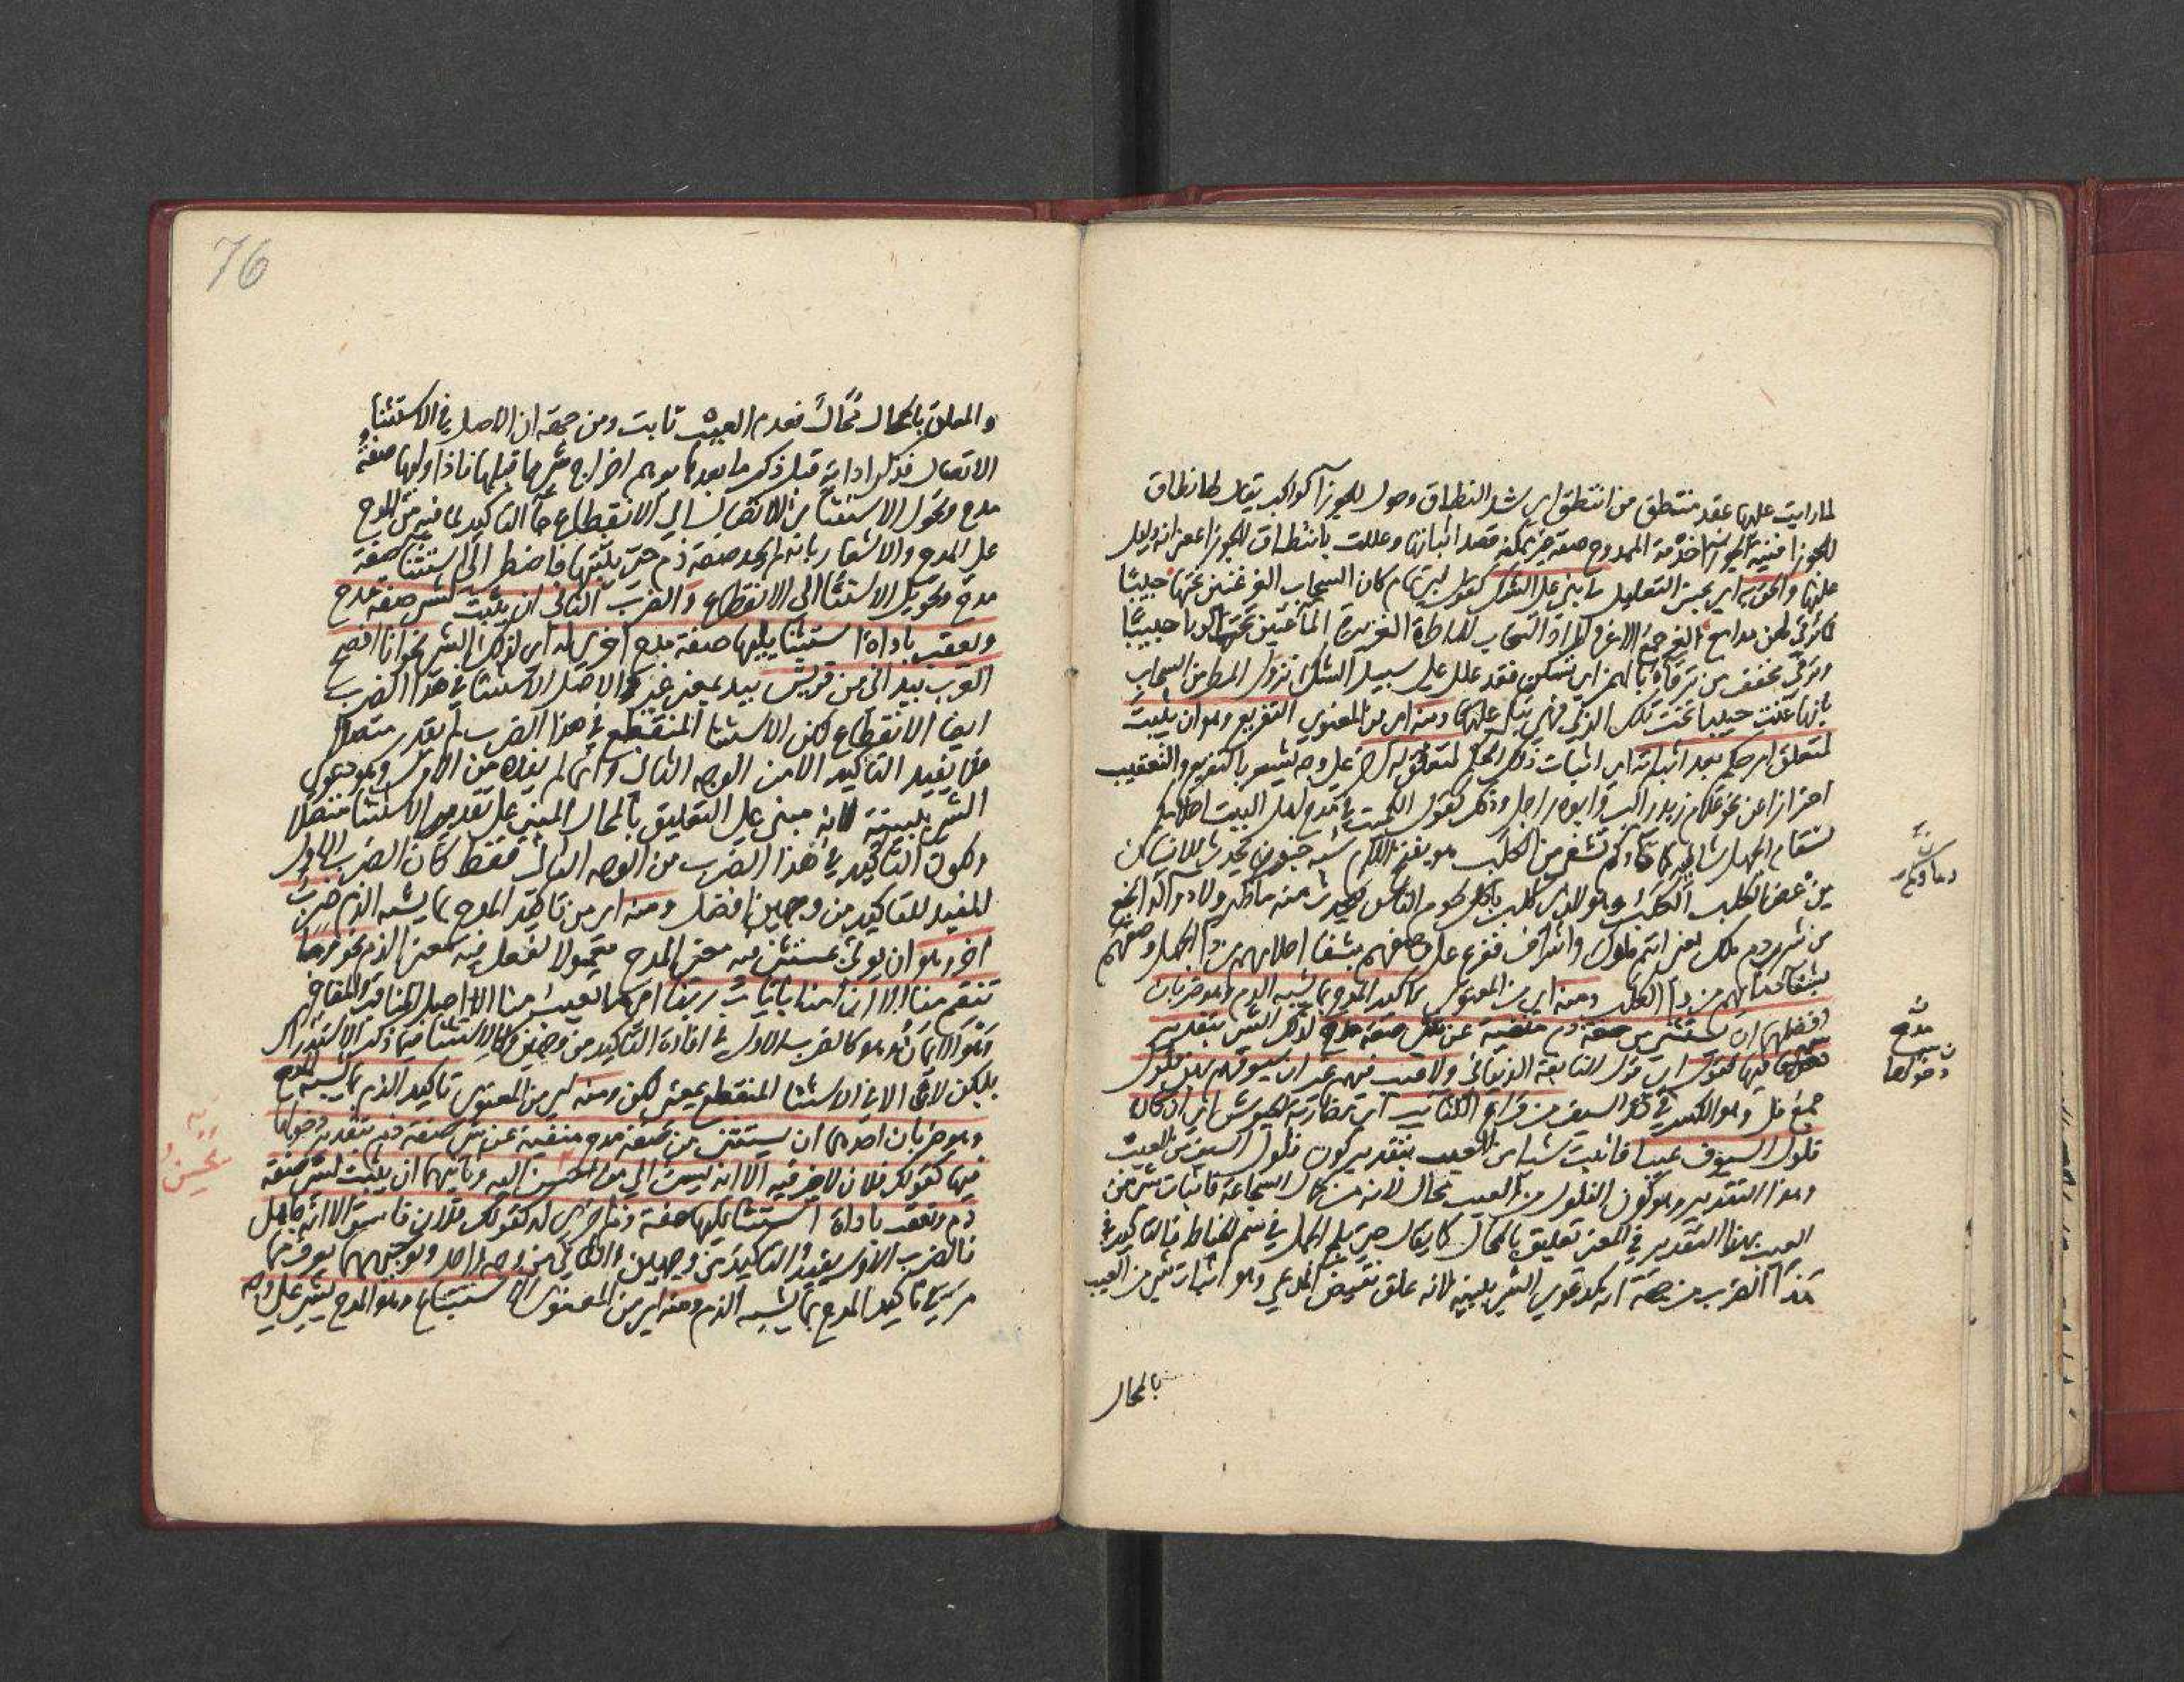 لما رايت عليها عقد منتطق من انتطق اي شد النطاق وحول الجوزآ كواكب يقال لها نطاق
الجوزا فنية الجوزا خدمة الممدوح صفة غير ممكنة قصد اثباتها وعللت بانتطاق الجوزا
عليها والحق به اي بحسن التعليل ما بني على الشك كقول ابي تمام كان السحاب الغر غيبن تحتها حبيبا
فما ترقى لهن مدامع الغر جمع الاغر والمراد السحاب الماطرة الغزيرة المآ
وترقى مخفف من ترقاء بالهمز اي تسكن فقد علل على سبيل الشك نزول المطر من السحاب
بانها غيبت حبيبا تحت تلك الربى فهي تبكي عليها ومنه اي من المعنوي التفريع وهو ان يثبت
لمتعلق امر حكم بعد اثباته اي اثبات ذلك الحكم لمتعلق له اخر على وجه يشعر بالتفريع والتعقيب
احترازا عن نحو غلام زيد راكب وابوه راجل وذلك كقول الكميت في مدح اهل البيت احلامكم
لسقام الجهل شافية كما دماؤكم تشفي من الكلب هو بفتح اللام شبه جنون يحدث للانسان
من عض الكلب الكلب وهو الذي كلب باكل لحوم الناس
من شرب دم ملك يعني انتم ملوك واشراف ففرع على وصفهم بشفا احلامهم من دآ الجهل وصفهم
بشفا دمائهم من دآ الكلب ومنه اي من المعنوي تاكيد المدح بما يشبه الذم وهو ضربان
افضلهما ان يستثنى من صفة ذم منفية عن شئ صفة مدح لذلك الشئ بتقدير
دخولها فيها كقوله اي قول النابغة الذبياني ولا عيب فيهم غير ان سيوفهم بهن فلول
جمع فل وهو الكسر في حد السيف من قراع الكتائب اي مضاربة الجيوش اي ان كان
فلول السيوف عيبا فاثبت شيا من العيب بتقدير كون فلول السيف من العيب
وهذا التقدير وهو كون الفلول من العيب محال لانه من كمال الشجاعة فاثبات شئ من
العيب بهذا التقدير في المعنى تعليق بالمحال كما يقال حتى يلج الجمل في سم الخياط فالتاكيد في
هذا الضرب من جهة انه كدعوى الشئ ببينة لانه علق نقيض المدعي وهو اثبات شئ من العيب
بالمحال
دماؤكم
مدح
دخولها
76
والمعلق بالمحال محال فعدم العيب ثابت ومن جهة ان الاصل في الاستثنا
الاتصال فذكر اداته قبل ذكر ما بعدها يوهم اخراج شئ مما قبلها فاذا وليها صفة
مدح وتحول الاستثنا من الاتصال الى الانقطاع جآ التاكيد لما فيه من المدح
على المدح والاشعار بانه لم يجد صفة ذم حتى يثبتها فاضطر الى استثنا صفة
مدح وتحويل الاستثنا الى الانقطاع والضرب الثاني ان يثبت لشئ صفة مدح
ويعقب باداة استثنا يليها صفة مدح اخرى له اي لذلك الشئ نحو انا افصح
العرب بيد اني من قريش بيد بمعنى غير والاصل الاستثنا في هذا الضرب
ايضا الانقطاع لكن الاستثنا المنقطع في هذا الضرب لم يقدر متصلا
فلا يفيد التاكيد الا من الوجه الثاني وانما لم يفده من الاول وهو دعوى
الشئ ببينة لانه مبني على التعليق بالمحال المبني على تقدير الاستثنا متصلا
ولكون التاكيد في هذا الضرب من الوجه الثاني فقط كان الضرب الاول
المفيد للتاكيد من وجهين افضل ومنه اي من تاكيد المدح بما يشبه الذم ضرب
اخر وهو ان يؤتى بمستثنى فيه معنى المدح معمولا لفعل فيه معنى الذم نحو وما
تنقم منا الا ان امنا بايات ربنا اي ما تعيب منا الا اصل المناقب والمفاخر
وهو الايمان وهو كالضرب الاول في افادة التاكيد من وجهين وكالاستثنا فيما ذكر الاستدراك
بلكن لان الا في الاستثنا المنقطع بمعنى لكن ومنه اي من المعنوي تاكيد الذم بما يشبه المدح
وهو ضربان احدهما ان يستثنى من صفة مدح منفية عن شئ صفة ذم بتقدير دخولها
فيها كقولك فلان لا خير فيه الا انه يسئ الى من احسن اليه وثانيهما ان يثبت لشئ صفة
ذم وتعقب باداة استثنا يليها صفة ذم اخرى له كقولك فلان فاسق الا انه جاهل
فالضرب الاول يفيد التاكيد من وجهين والثاني من وجه واحد وتوجيههما يعرف مما
مر في تاكيد المدح بما يشبه الذم ومنه اي من المعنوي الاستتباع وهو المدح لشئ على وجه